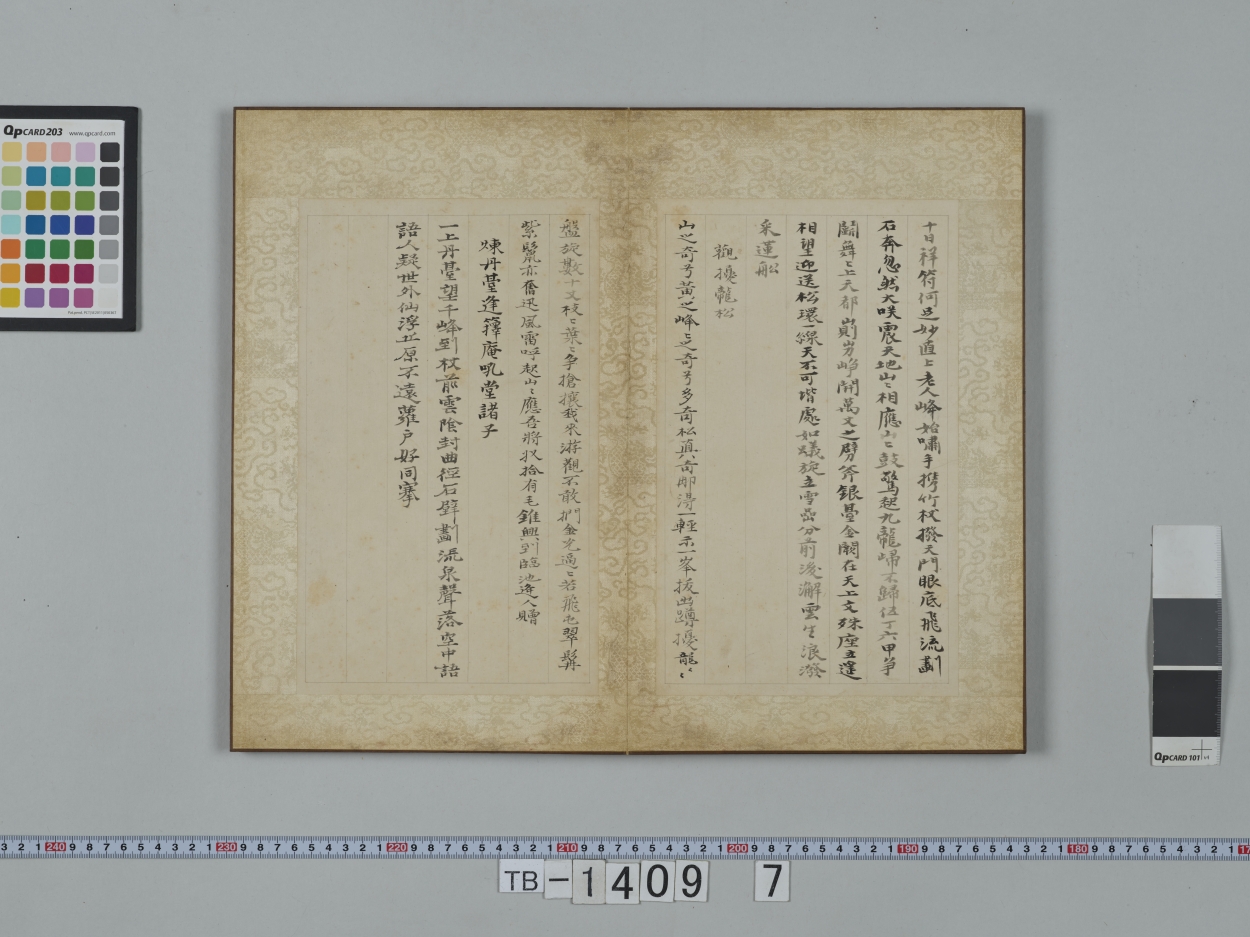 十日祥符何足妙直上老人峰始嘯手攜竹杖撥天門眼底飛流劃
石奔忽然大咲震天地山〻相應山〻鼓驚起九龍歸不歸伍丁六甲爭
鬭舞〻上天都 崱屴崢開萬丈之劈斧銀臺金闕在天上文殊座立蓮
相望迎送松環一綫天不可堦處如蟻旋立雪嵒分前後澥雲生浪潑
采蓮船
觀擾龍松
山之奇兮黃之峰〻之奇兮多奇松真奇那得一輕示一峯拔出蹲擾龍〻
盤旋數十丈枝〻葉〻爭搶攘我來游觀不敢捫金光遍〻若飛屯翠髯
紫鬛亦奮迅風雷呼起山〻應吾將收拾有毛錐興到臨池逢人贈
煉丹臺逢籜庵吼堂諸子
一上丹臺望千峰到杖前雲陰封曲徑石壁劃流泉聲落空中語
語人疑世外仙浮丘原不遠蘿戶好同搴
QpCARD 203 www.qpcard.com
QpCARD 101 v1
3 2 1 240 9 8 7 6 5 4 3 2 1 230 9 8 7 6 5 4 3 2 1 220 9 8 7 6 5 4 3 2 1 210 9 8 7 6 5 4 3 2 1 200 9 8 7 6 5 4 3 2 1 190 9 8 7 6 5 4 3 2 1 180 9 8 7 6 5 4 3 2 1 17
TB-1409 7